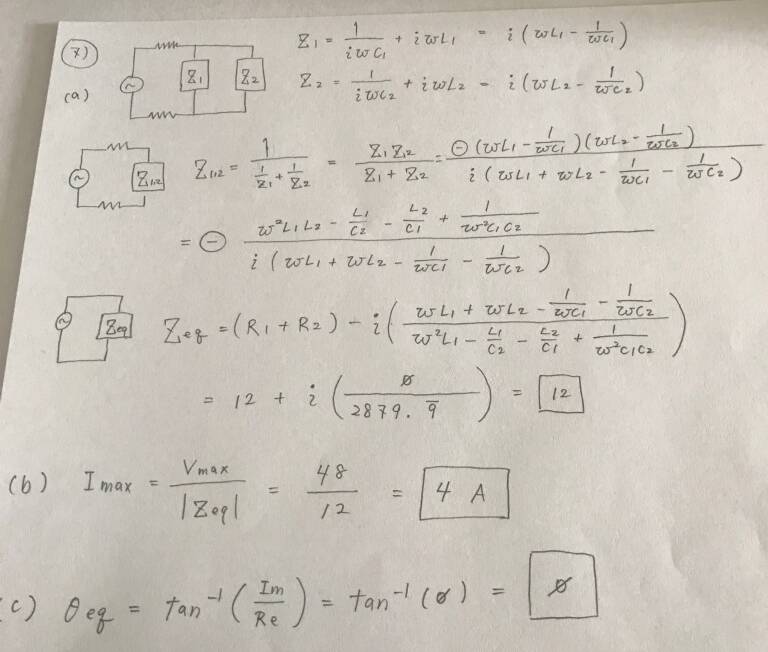 7)
(a)
Z1 Z2
Z₁ = 1/(iwC₁) + iwL₁ = i(wL₁ - 1/(wC₁))
Z₂ = 1/(iwC₂) + iwL₂ = i(wL₂ - 1/(wC₂))
Z1,2
Z₁,₂ = 1/(1/Z₁ + 1/Z₂) = Z₁Z₂/(Z₁ + Z₂) = ⊖(wL₁ - 1/(wC₁))(wL₂ - 1/(wC₂))/(i(wL₁ + wL₂ - 1/(wC₁) - 1/(wC₂)))
= ⊖ (w²L₁L₂ - L₁/C₂ - L₂/C₁ + 1/(w²C₁C₂))/(i(wL₁ + wL₂ - 1/(wC₁) - 1/(wC₂)))
Zeq
Zeq = (R₁ + R₂) - i((wL₁ + wL₂ - 1/(wC₁) - 1/(wC₂))/(w²L₁ - L₁/C₂ - L₂/C₁ + 1/(w²C₁C₂)))
= 12 + i(∅/2879.9̅) = 12
(b) Imax = Vmax/|Zeq| = 48/12 = 4 A
(c) θeq = tan⁻¹(Im/Re) = tan⁻¹(∅) = ∅